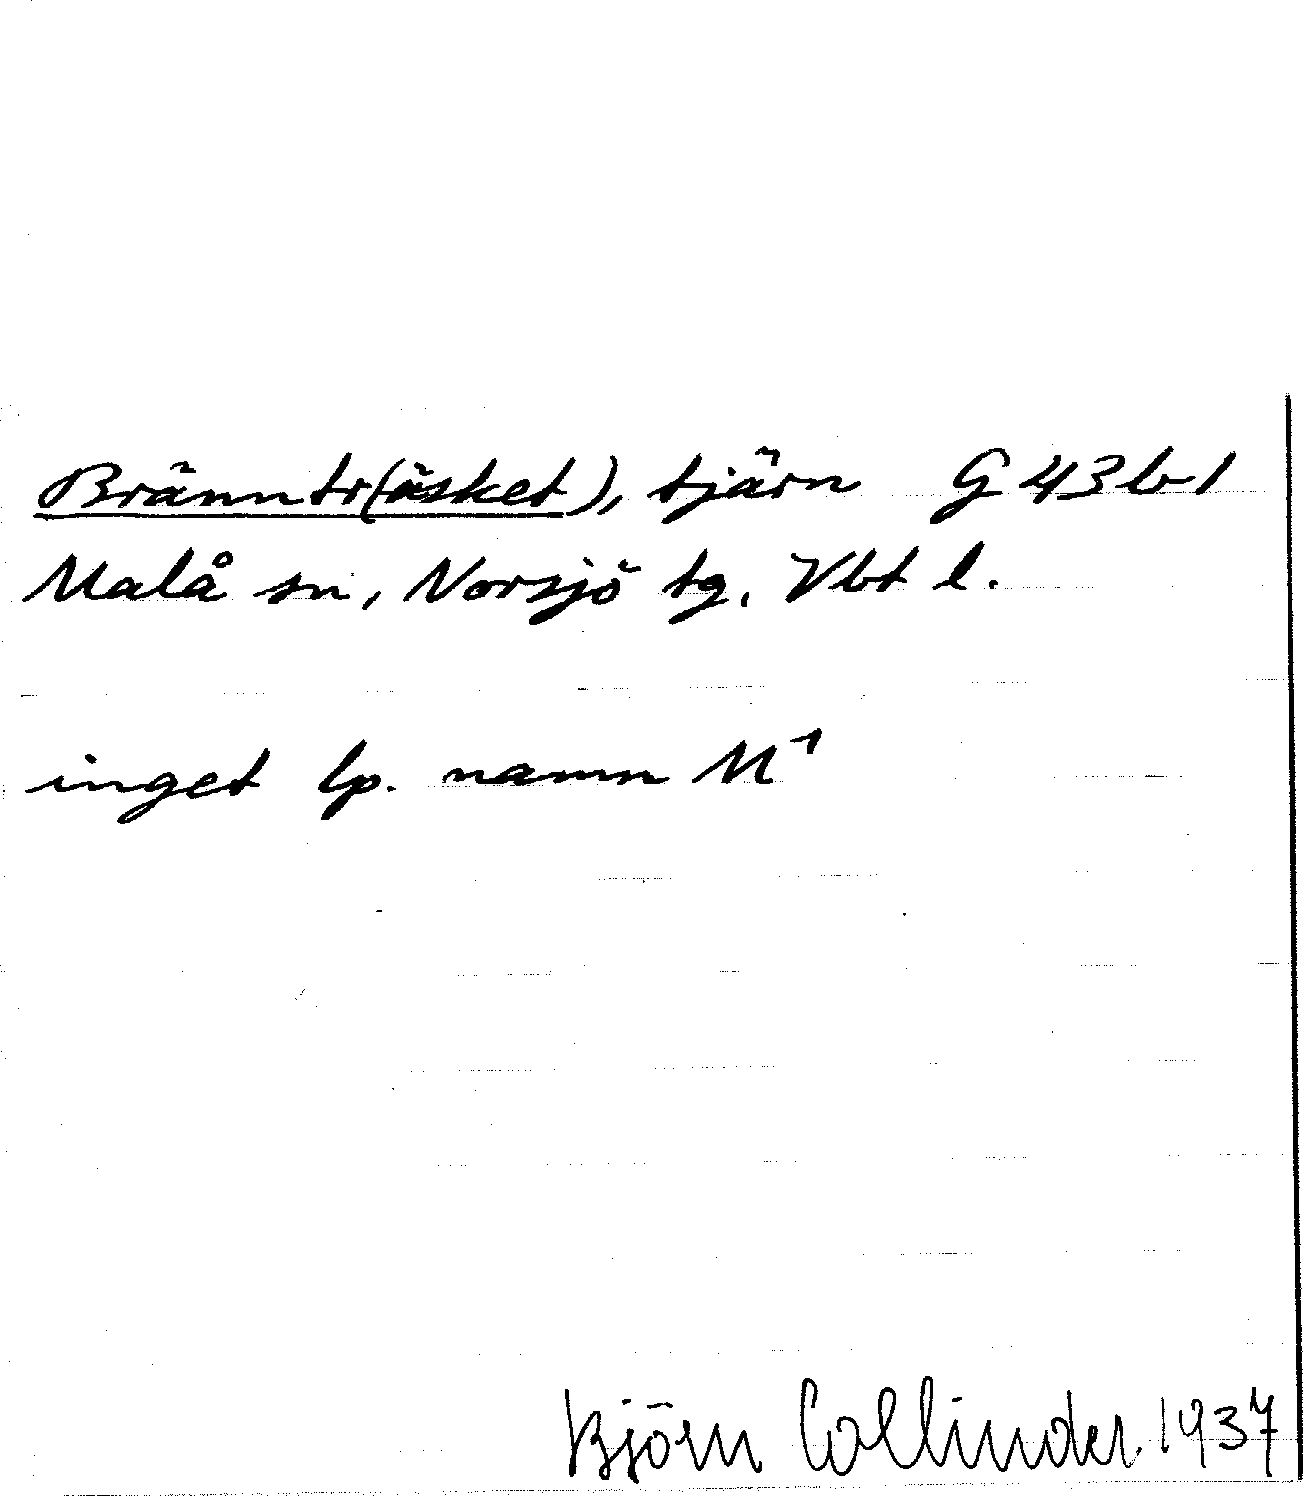 Bränntr(äsket), tjärn G 43 b 1
Malå sn, Norsjö tg, Vbt l.
inget lp. namn M1
Björn Collinder 1937